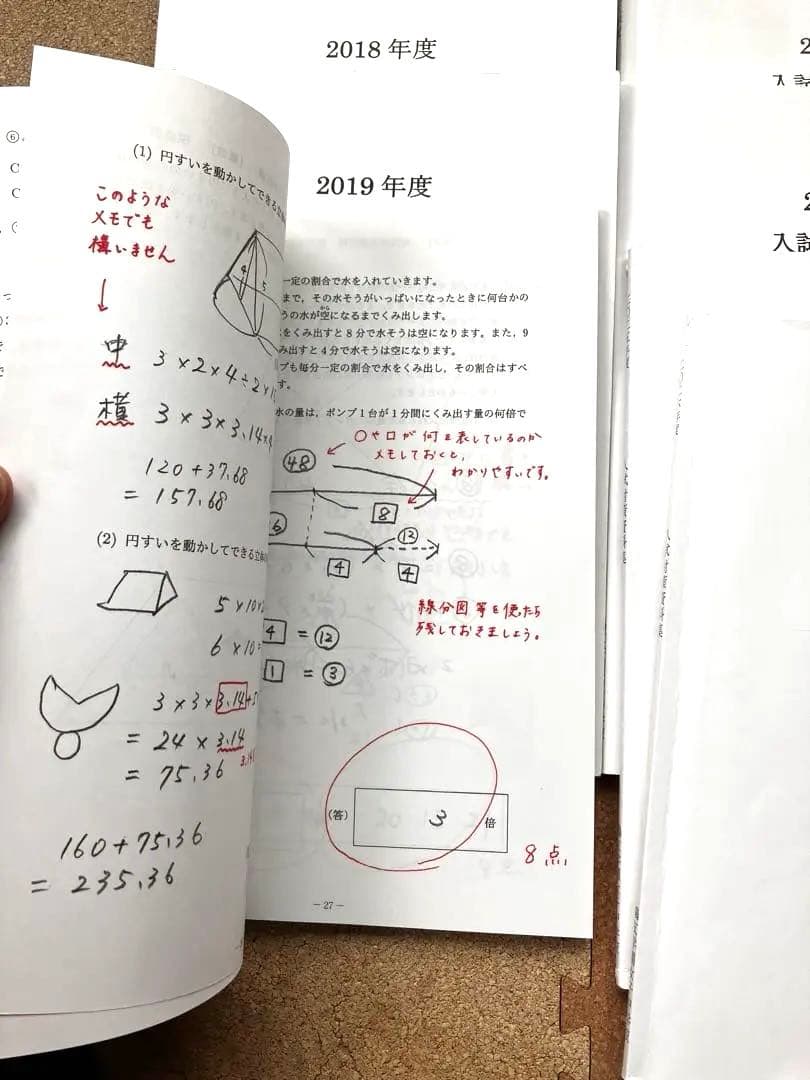 2018 年度
2019 年度
(1) 円すいを動かしてできる立体
このような
メモでも
構いません
4
5
中 3×2×4÷2×1
横 3×3×3.14×
120+37.68
= 157.68
(2) 円すいを動かしてできる立体
5×10×
6×10
3×3×3.14+5
= 24×3.14
= 75.36
160+75.36
= 235.36
一定の割合で水を入れていきます。
まで，その水そうがいっぱいになったときに何台かの
うの水が空になるまでくみ出します。
をくみ出すと8分で水そうは空になります。また，9
み出すと4分で水そうは空になります。
プも毎分一定の割合で水をくみ出し，その割合はすべ
す。
水の量は，ポンプ1台が1分間にくみ出す量の何倍で
○や□が何を表しているのか
メモしておくと，
わかりやすいです。
48
8
6
12
4
4
線分図等を使ったら
残しておきましょう。
4 = ⑫
1 = ③
(答) 3 倍
8点
－27－
入試